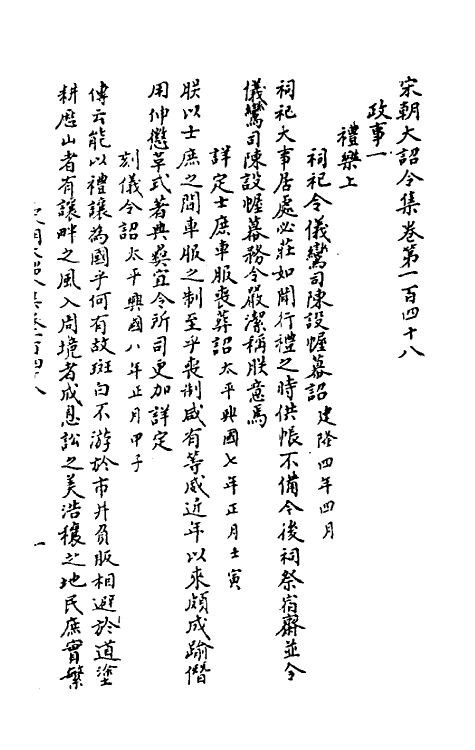 宋朝大詔令集卷第一百四十八
政事一
禮樂上
祠祀令儀鸞司陳設幄幕詔建隆四年四月
祠祀大事居處必莊如聞行禮之時供帳不備今後祠祭宿齋並令
儀鸞司陳設幄幕務令嚴潔稱朕意焉
詳定士庶車服喪葬詔太平興國七年正月壬寅
朕以士庶之間車服之制至乎喪制咸有等威近年以來頗成踰僭
用伸懲革式著典彜宜令所司更加詳定
刻儀令詔太平興國八年正月甲子
傳云能以禮讓為國乎何有故斑白不游於市井負販相避於道塗
耕歷山者有讓畔之風入周境者成息訟之美浩穰之地民庶實繁
一